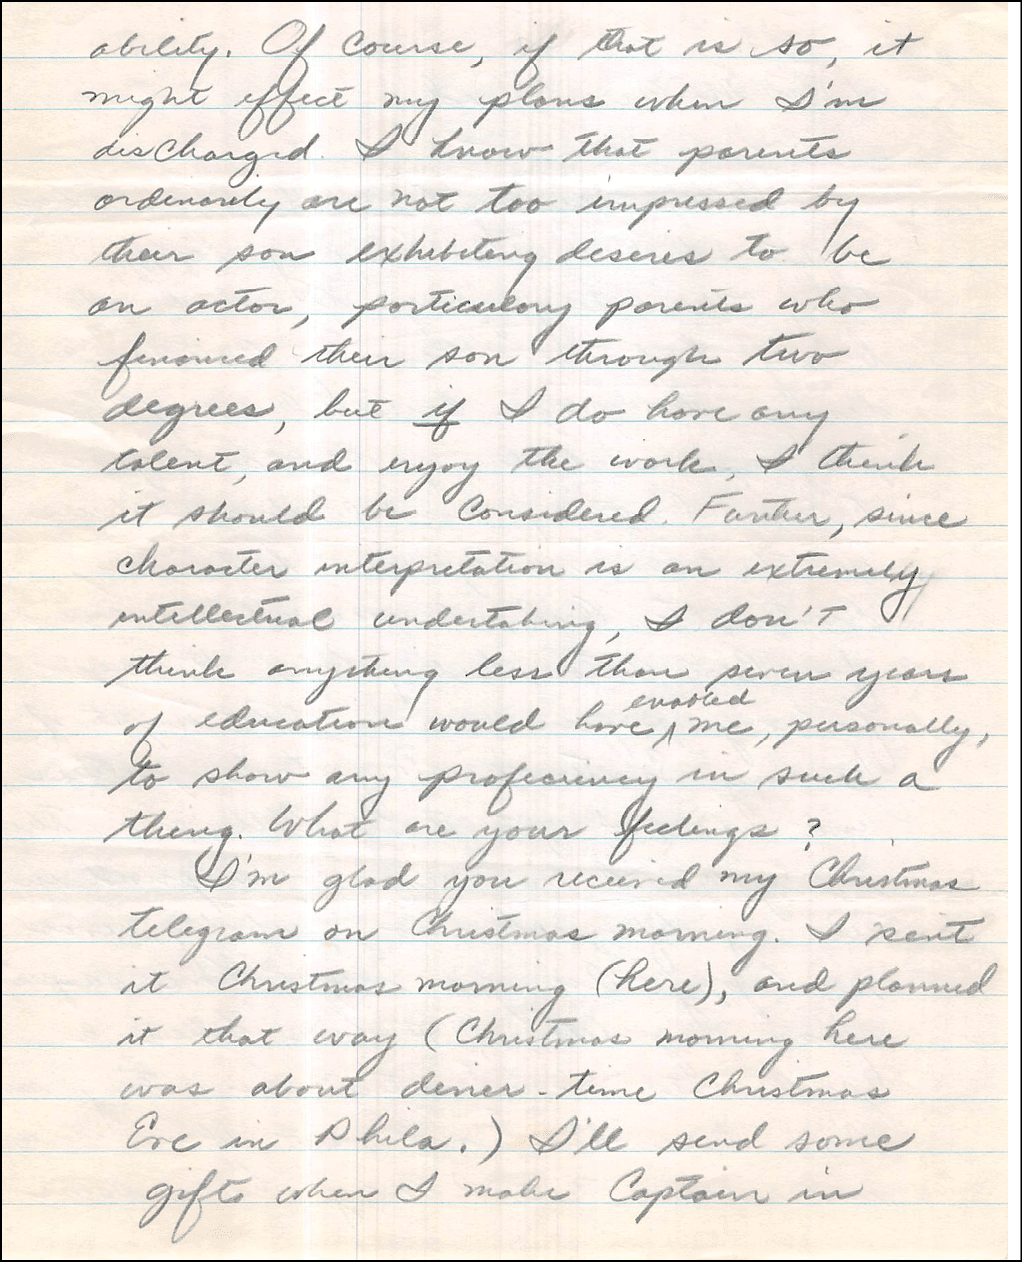 ability. Of course, if that is so, it
might effect my plans when I'm
discharged. I know that parents
ordinarily are not too impressed by
their son exhibiting desires to be
an actor, particulary parents who
financed their son through two
degrees, but if I do have any
talent, and enjoy the work, I think
it should be considered. Further, since
character interpretation is an extremely
intellectual undertaking, I don't
think anything less than seven years
of education would have enabled me, personally,
to show any proficiency in such a
thing. What are your feelings?
I'm glad you received my Christmas
telegram on Christmas morning. I sent
it Christmas morning (here), and planned
it that way (Christmas morning here
was about diner-time Christmas
Eve in Phila.) I'll send some
gifts when I make Captain in